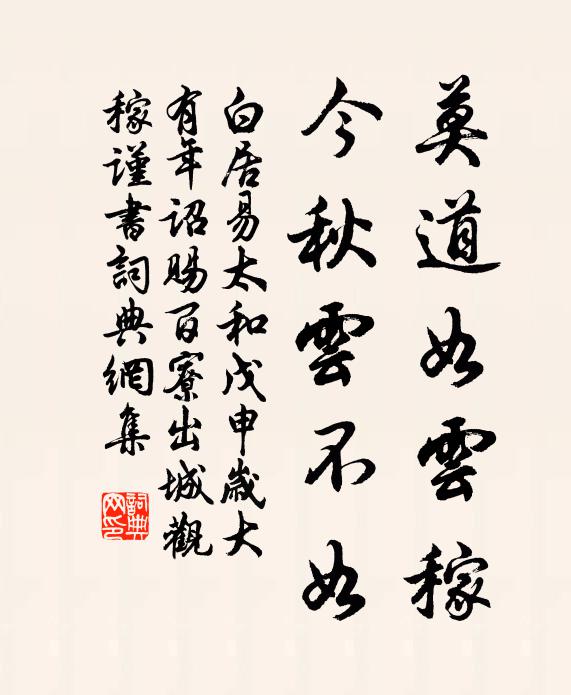 莫道如雲稼
今秋雲不如
白居易太和戊申歲大
有年詔賜百寮出城觀
稼謹書詞典網集
詞典網印